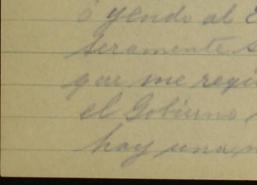 ó yendo al E
seramente s
que me regi
el Gobierno
hay una n